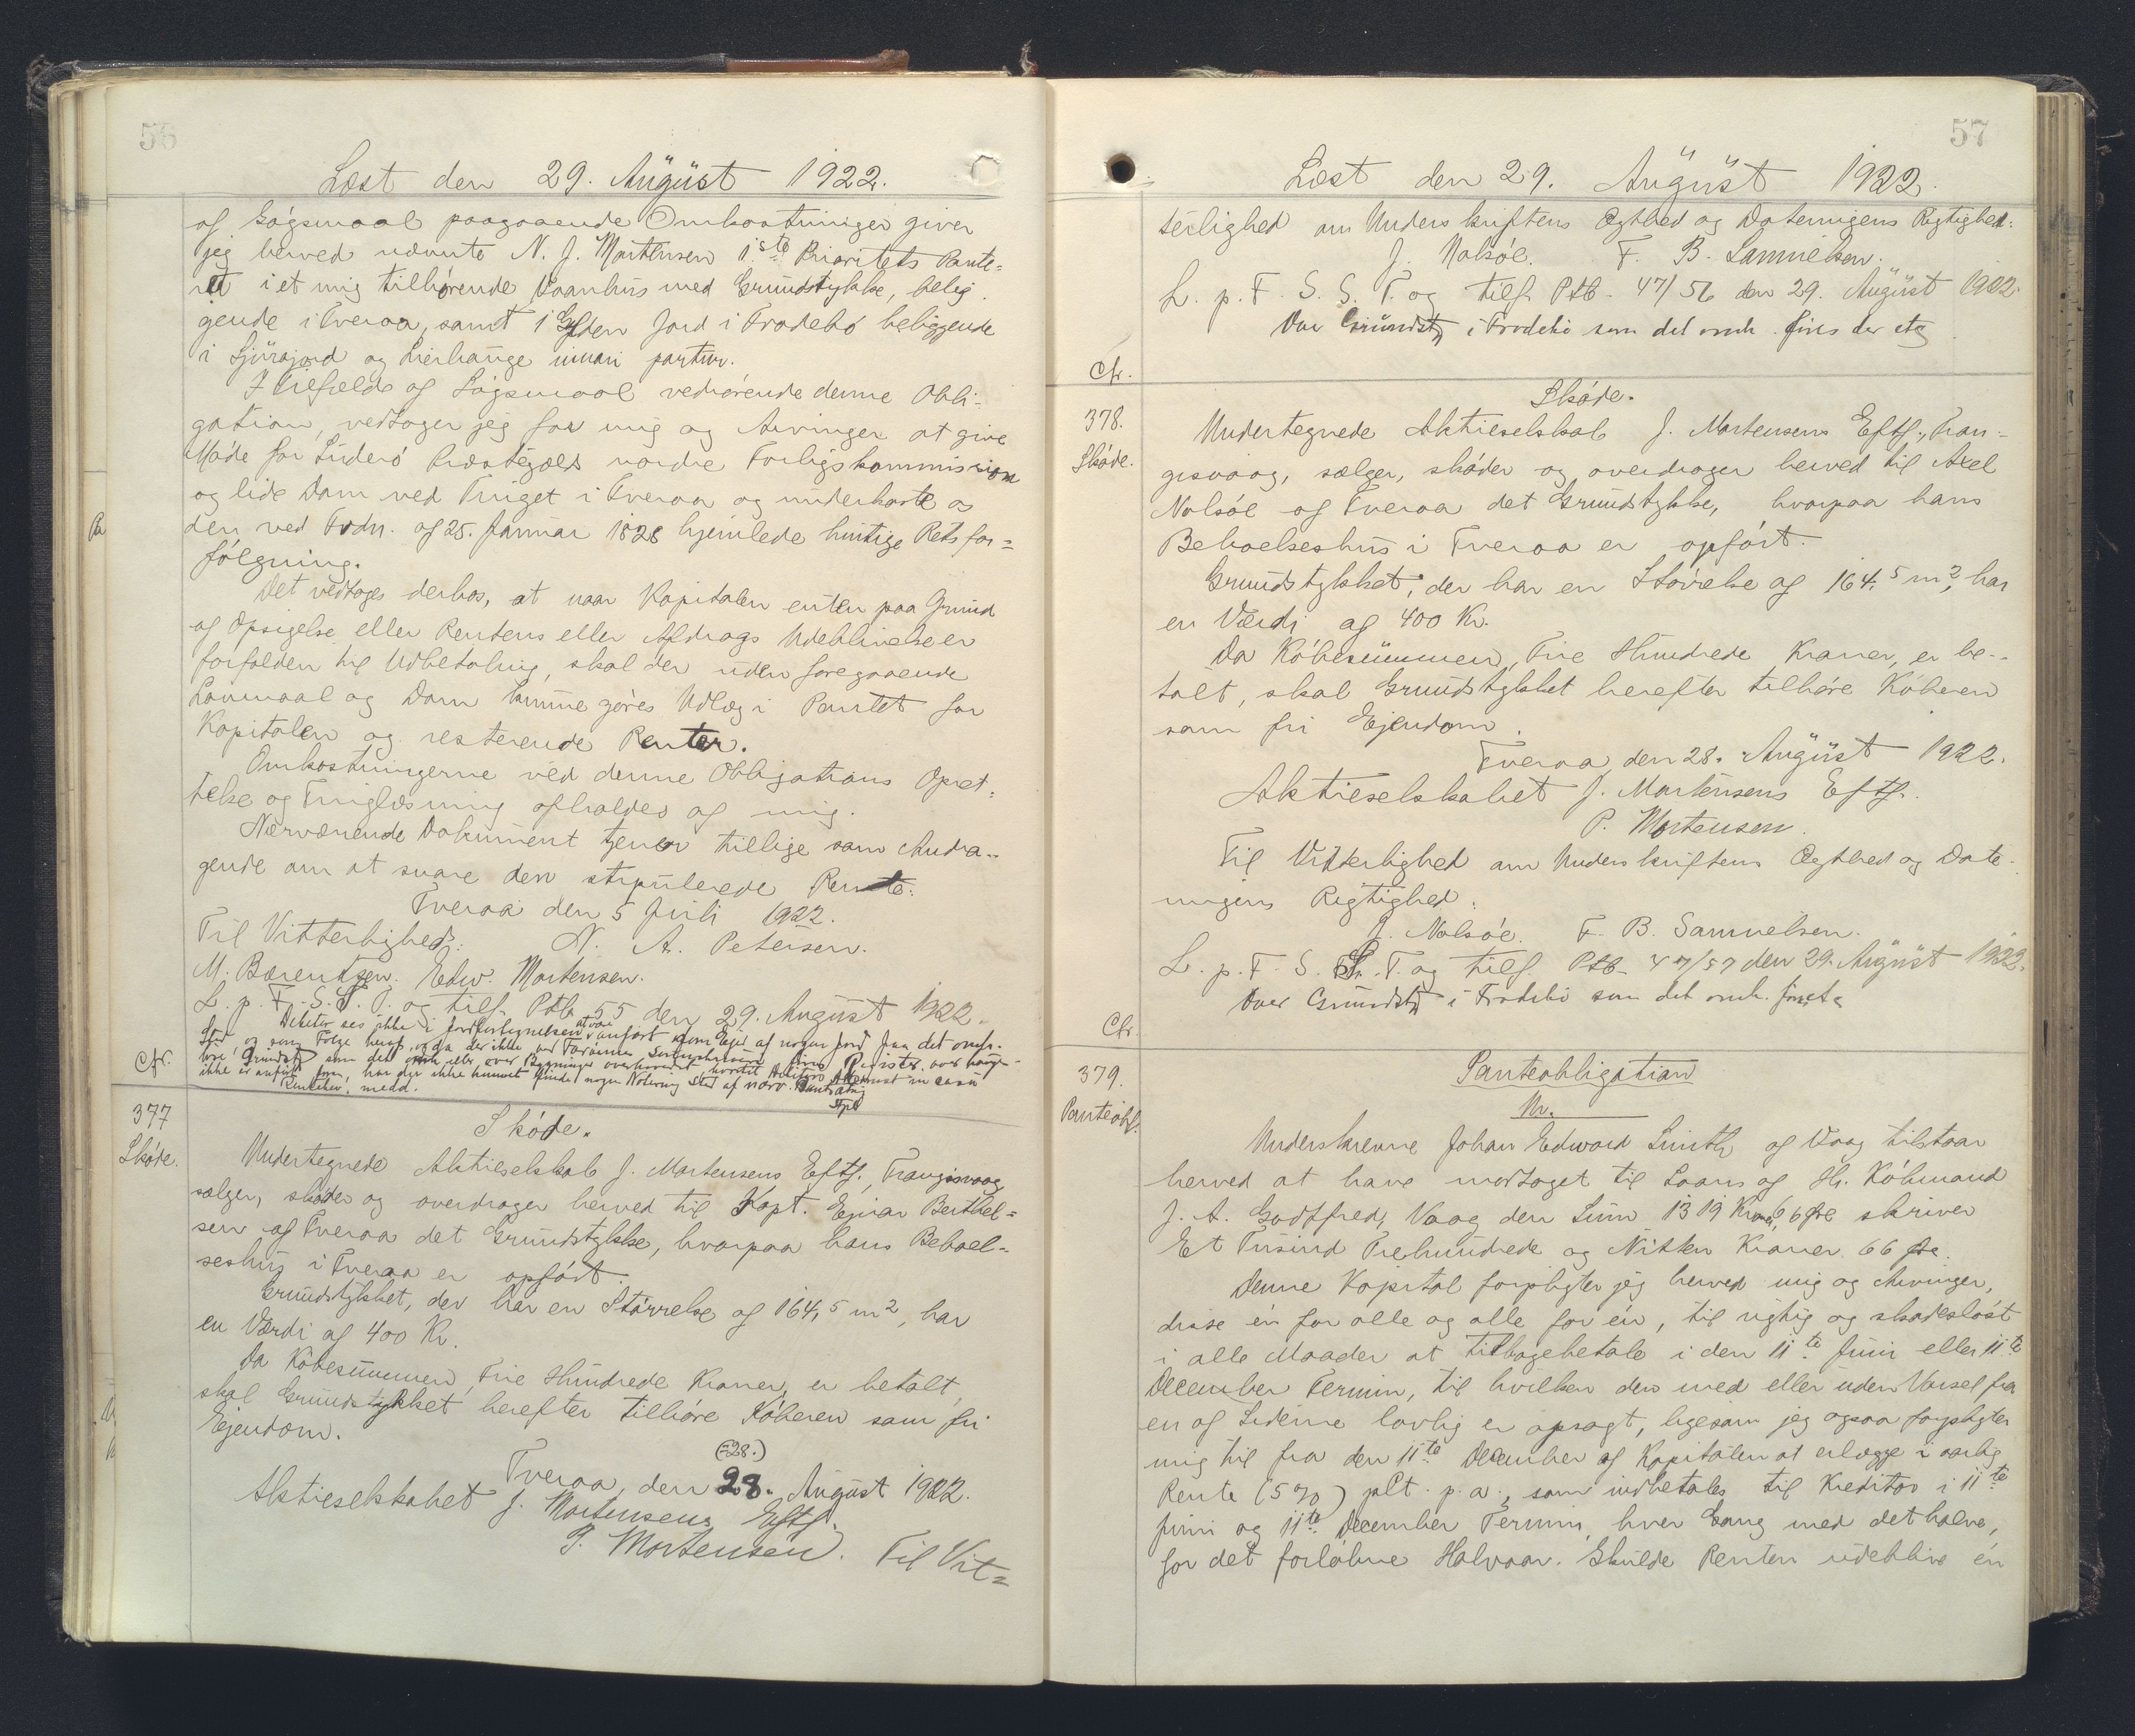 56
Læst den 29. August 1922.
af Søgsmaal paagaaende Omkostninger giver
jeg herved nævnte N. J. Mortensen 1ste Prioritets Pante=
ret i et mig tilhørende Vaanhus med Grundstykke, belig
gende i Tveraa, samt 1 Gylden Jord i Frodebø beliggende
i og
I Tilfælde af Søgsmaal vedrørende denne Obli=
gation, vedtager jeg for mig og Arvinger at give
Møde for Suderø Præstegjælds nordre Forligskommission
og lide Dom ved Tinget i Tveraa og underkaste os
den ved Frdn. af 25. Januar 1828 hjemlede hurtige Retsfor=
følgning.
Det vedtages derhos, at naar Kapitalen enten paa Grund
af Opsigelse eller Rentens eller Afdrags Udeblivelse er
forfalden til Udbetaling, skal der uden foregaaende
Lovmaal og Dom kunne gøres Udlæg i Pantet for
Kapitalen og resterende Renter.
Omkostningerne ved denne Obligations Opret=
telse og Tinglæsning afholdes af mig.
Nærværende Dokument tjener tillige som Andra=
gende om at svare den stipulerede Rente.
Tveraa den 5 Juli 1922.
Til Vitterlighed: N. A. Petersen.
M. Bærentsen. Edw. Mortensen.
L. p. F. S. S. T. og tilf. Ptb. 55 den 29. August 1922.
Debitor ses ikke i Jordfortegnelsen at være anført som Ejer af nogen Jord paa det omh.
Cfr.
377
Skøde.
Skøde.
Undertegnede Aktieselskab J. Mortensens Eftf., Trangisvaag
sælger, skøder og overdrager herved til Kapt. Ejnar Berthel=
sen af Tveraa det Grundstykke, hvorpaa hans Beboel=
seshus i Tveraa er opført.
Grundstykket, der har en Størrelse af 164,5 m2, har
en Værdi af 400 Kr.
Da Købesummen, Fire Hundrede Kroner, er betalt,
skal Grundstykket herefter tilhøre Køberen som fri
Ejendom.
(=28.)
Tveraa, den 28. August 1922.
Aktieselskabet J. Mortensens Eftf.
P. Mortensen. Til Vit=
57
Læst den 29. August 1922.
terlighed om Underskriftens Ægthed og Dateringens Rigtighed:
J. Nolsøe. F. B. Samuelsen.
L. p. F. S. S. T. og tilf. Ptb. 47/56 den 29. August 1922.
Over Grundst. i Frodebø som det omh. fires der
Cfr.
378.
Skøde.
Skøde.
Undertegnede Aktieselskab J. Mortensens Eftf., Tran=
gisvaag, sælger, skøder og overdrager herved til Axel
Nolsøe af Tveraa det Grundstykke, hvorpaa hans
Beboelseshus i Tveraa er opført.
Grundstykket, der har en Størrelse af 164,5 m2, har
en Værdi af 400 Kr.
Da Købesummen, Fire Hundrede Kroner, er be=
talt, skal Grundstykket herefter tilhøre Køberen
som fri Ejendom.
Tveraa, den 28. August 1922.
Aktieselskabet J. Mortensens Eftf.
P. Mortensen.
Til Vitterlighed om Underskriftens Ægthed og Date=
ringens Rigtighed:
J. Nolsøe. F. B. Samuelsen.
L. p. F. S. S. T. og tilf. Ptb. 47/57 den 29. August 1922.
Over Grundst. i Frodebø som det omh.
Cfr.
379.
Panteobl.
Panteobligation
Nr.
Underskrevne Johan Edward Smith af Vaag tilstaar
herved at have modtaget til Laans af Hr. Købmand
J. A. Godtfred, Vaag den Sum 1319 Kroner 66 Øre skriver
Et Tusind Trehundrede og Nitten Kroner 66 Øre.
Denne Kapital forpligter jeg herved mig og Arvinger,
disse én for alle og alle for én, til rigtig og skadesløst
i alle Maader at tilbagebetale i den 11te Juni eller 11te
December Termin, til hvilken den med eller uden Varsel fra
en af Siderne lovlig er opsagt, ligesom jeg ogsaa forpligter
mig til fra den 11te December af Kapitalen at erlægge i aarlig
Rente (5 %) pCt. p. a., som indbetales til Kreditor i 11te
Juni og 11te December Termin, hver Gang med det halve,
for det forløbne Halvaar. Skulde Renten udeblive én